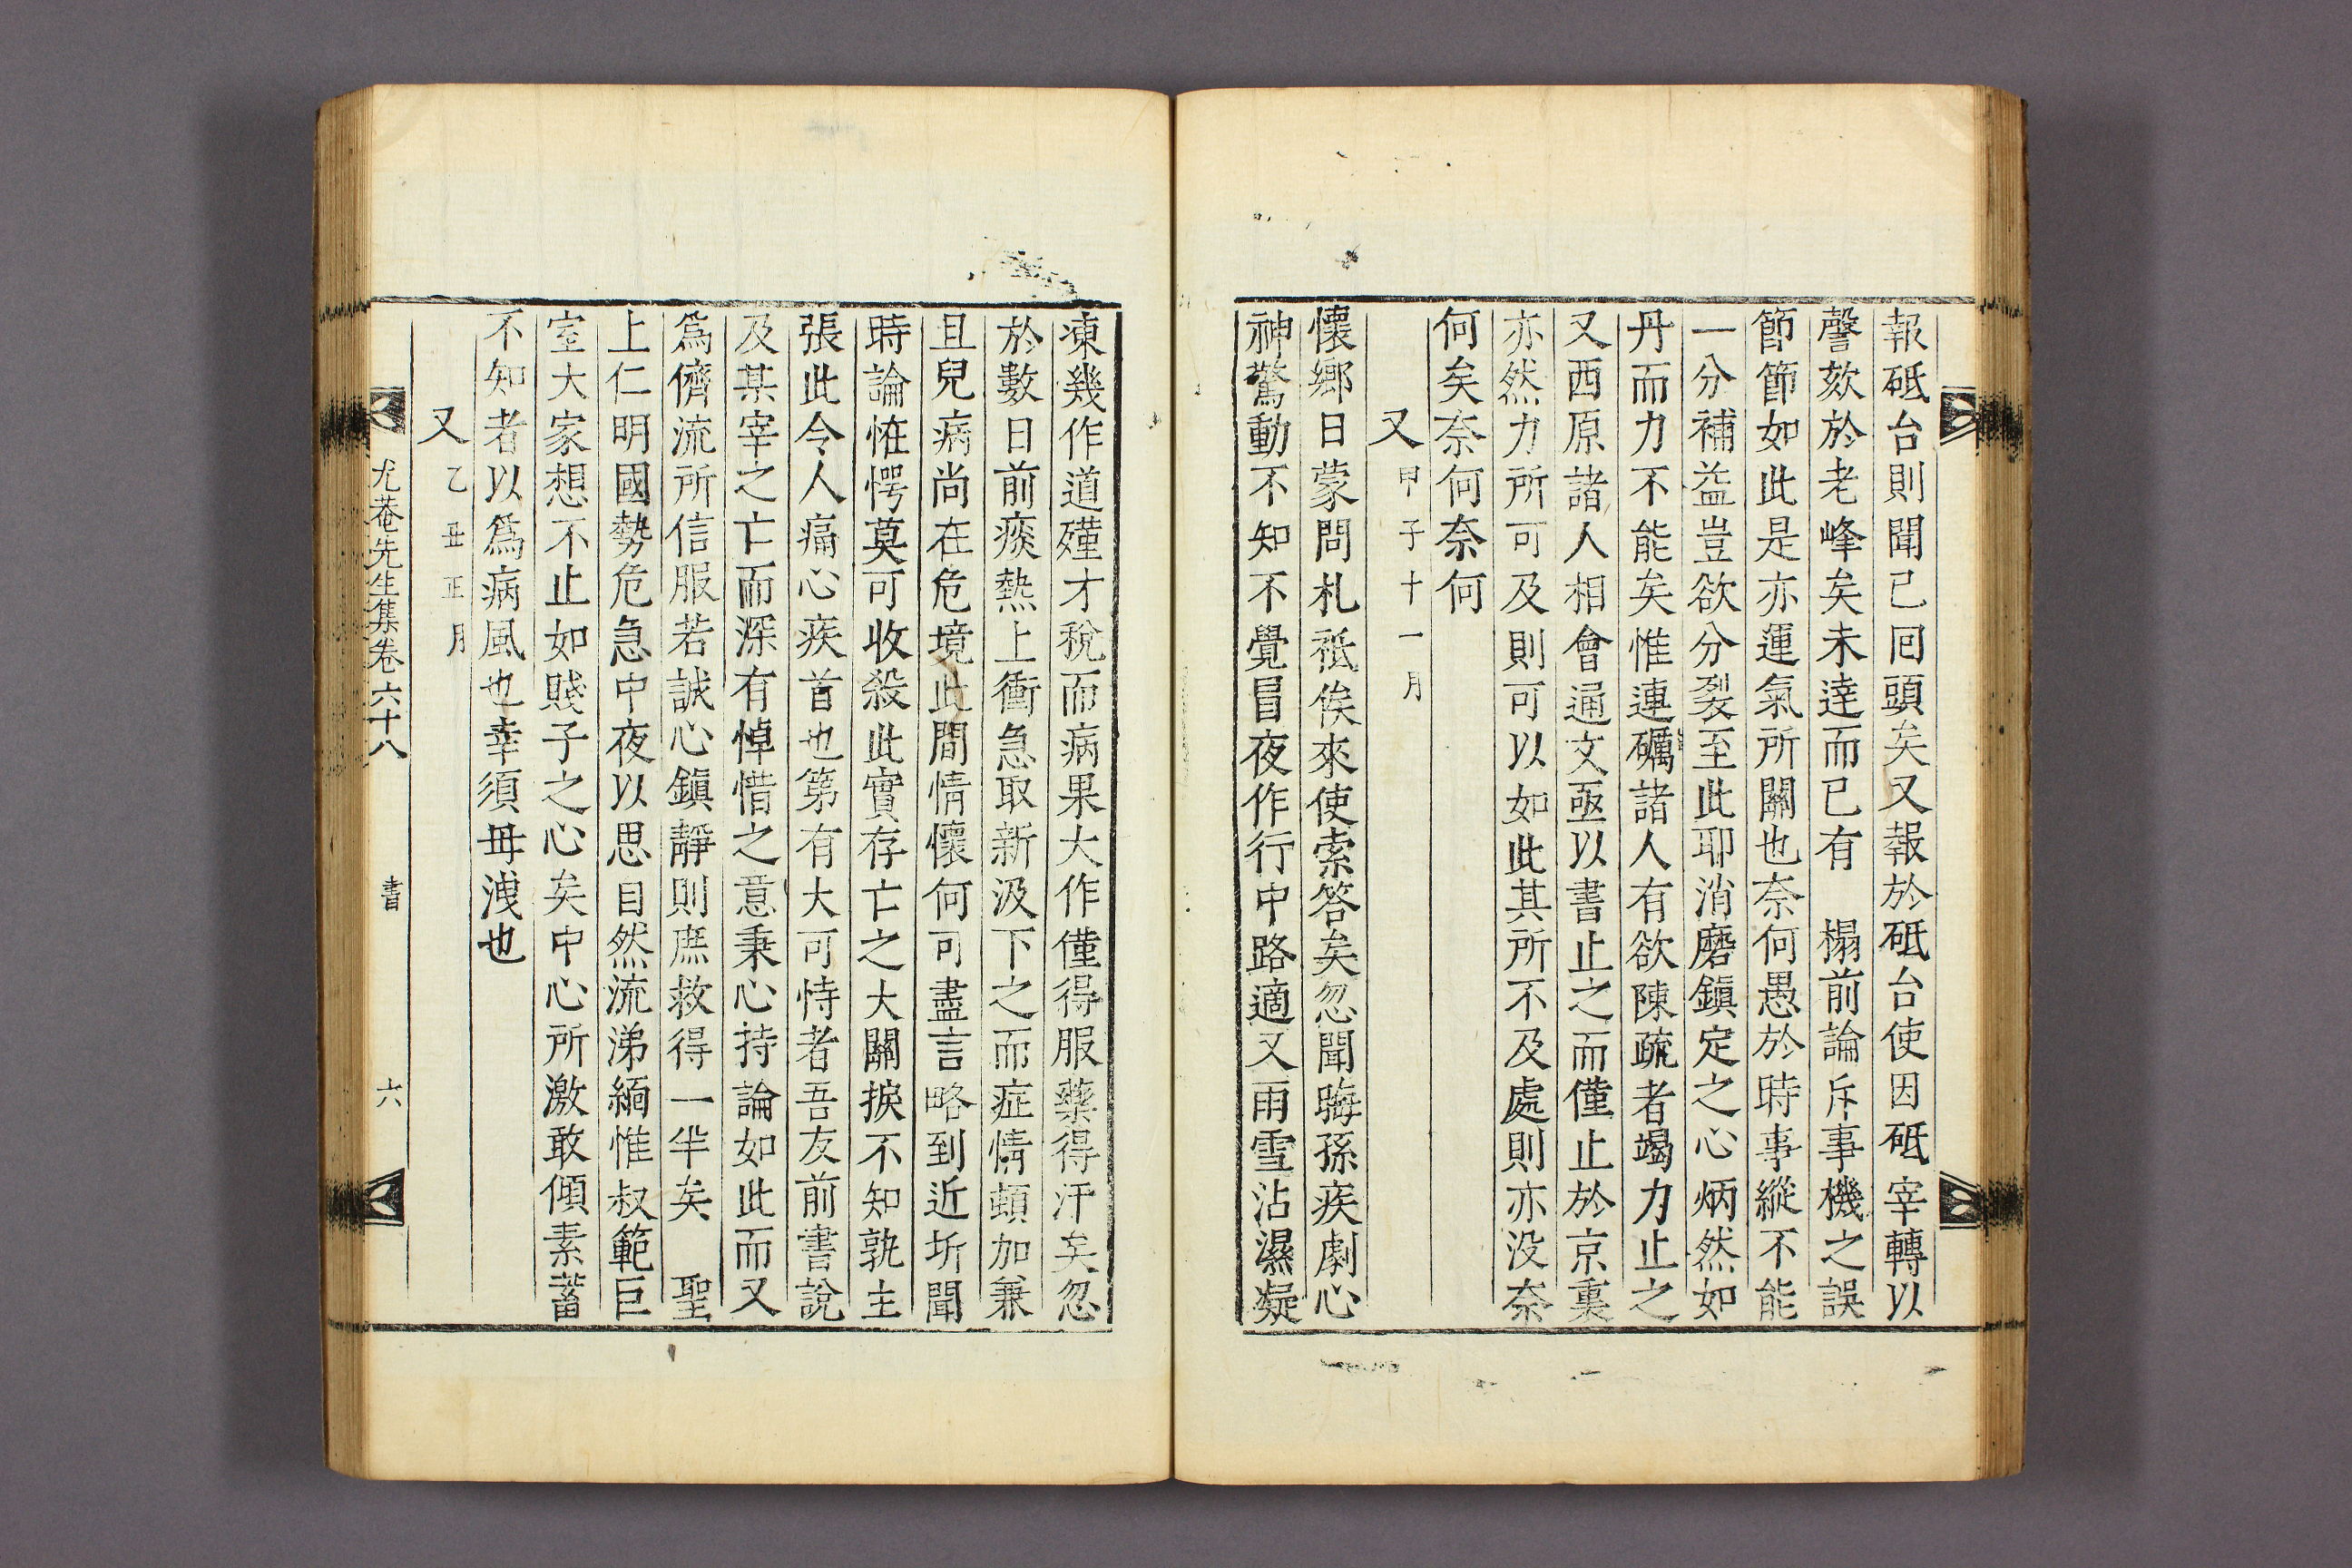 報砥台則聞已囘頭矣又報於砥台使因砥宰轉以
謦欬於老峰矣未達而已有 榻前論斥事機之誤
節節如此是亦運氣所關也奈何愚於時事縱不能
一分補益豈欲分裂至此耶消磨鎭定之心炳然如
丹而力不能矣惟連礪諸人有欲陳疏者竭力止之
又西原諸人相會通文亟以書止之而僅止於京裏
亦然力所可及則可以如此其所不及處則亦没奈
何矣奈何奈何
又 甲子十一月
懷鄉日蒙問札祗俟來使索答矣忽聞晦孫疾劇心
神驚動不知不覺冒夜作行中路適又雨雪沾濕凝
凍幾作道殣才稅而病果大作僅得服藥得汗矣忽
於數日前痰熱上衝急取新汲下之而症情頓加兼
且兒病尚在危境此間情懷何可盡言略到近圻聞
時論恠愕莫可收殺此實存亡之大關捩不知孰主
張此令人痛心疾首也第有大可恃者吾友前書說
及某宰之亡而深有悼惜之意秉心持論如此而又
爲儕流所信服若誠心鎭靜則庶救得一半矣 聖
上仁明國勢危急中夜以思目然流涕緬惟叔範巨
室大家想不止如賤子之心矣中心所激敢傾素蓄
不知者以爲病風也幸須毋洩也
又 乙丑正月
尤菴先生集卷六十八 書 六